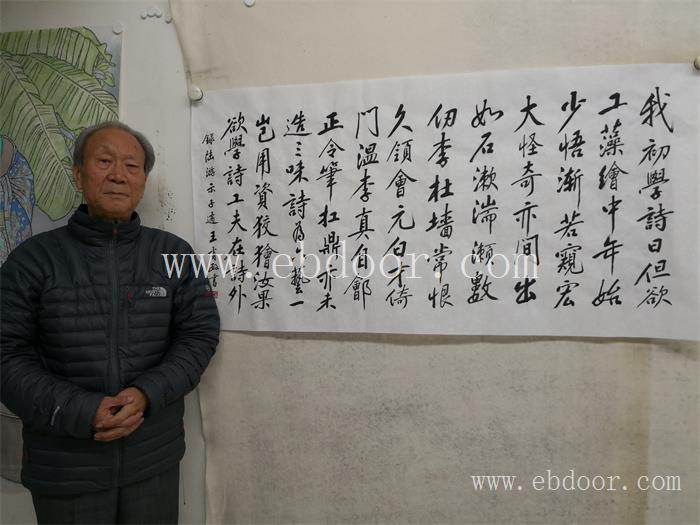 我初學詩日但欲
工藻繪中年始
少悟漸若窺宏
大怪奇亦間出
如石漱湍瀨數
仞李杜墻常恨
久領會元白才倚
門溫李真自鄶
正令筆扛鼎亦未
造三味詩為六藝一
豈用資狡獪汝果
欲學詩工夫在詩外
錄陸游示子遹王書
THE NORTH FACE
www.ebdoor.com
www.ebdoor.com